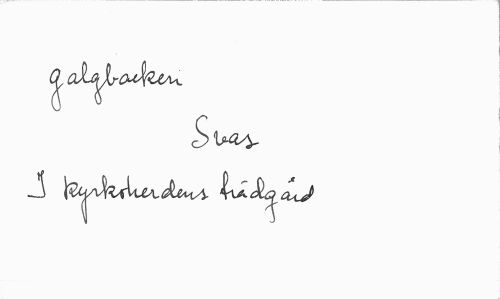 galgbacken
Svas
I kyrkoherdens trädgård